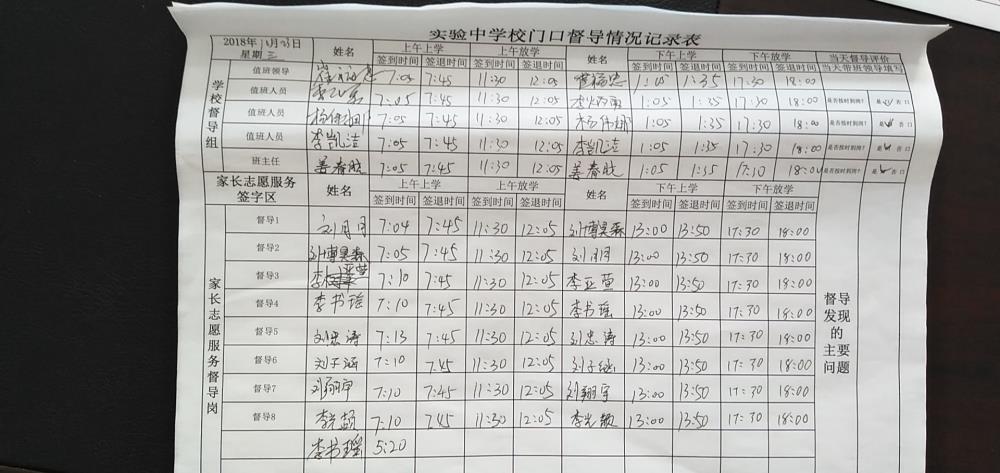 实验中学校门口督导情况记录表
2018年11月 日 星期三 姓名 上午上学 上午放学 姓名 下午上学 下午放学 当天督导评价
签到时间 签退时间 签到时间 签退时间 签到时间 签退时间 签到时间 签退时间 当天带班领导填写
学校督导组
值班领导 7:05 7:45 11:30 12:05 1:05 1:35 17:30 18:00
值班人员 7:05 7:45 11:30 12:05 1:05 1:35 17:30 18:00 是否按时到岗? 是 否口
值班人员 杨伟娜 7:05 7:45 11:30 12:05 杨伟娜 1:05 1:35 17:30 18:00 是否按时到岗? 是 否口
值班人员 李凯洁 7:05 7:45 11:30 12:05 李凯洁 1:05 1:35 17:30 18:00 是否按时到岗? 是 否口
班主任 姜春 7:05 7:45 11:30 12:05 姜春 1:05 1:35 17:10 18:00 是否按时到岗? 是 否口
家长志愿服务签字区 姓名 上午上学 上午放学 姓名 下午上学 下午放学
签到时间 签退时间 签到时间 签退时间 签到时间 签退时间 签到时间 签退时间
家长志愿服务督导岗
督导1 刘月月 7:04 7:45 11:30 12:05 刘博昊森 13:00 13:50 17:30 18:00
督导2 刘博昊森 7:05 7:45 11:30 12:05 刘月月 13:00 13:50 17:30 18:00
督导3 李亚萱 7:10 7:45 11:30 12:05 李亚萱 13:00 13:50 17:30 18:00
督导4 李书瑶 7:10 7:45 11:30 12:05 李书瑶 13:00 13:50 17:30 18:00
督导5 刘忠涛 7:13 7:45 11:30 12:05 刘忠涛 13:00 13:50 17:30 18:00
督导6 刘子涵 7:10 7:45 11:30 12:05 刘子涵 13:00 13:50 17:30 18:00
督导7 刘翔宇 7:10 7:45 11:30 12:05 刘翔宇 13:00 13:50 17:30 18:00
督导8 7:10 7:45 11:30 12:05 13:00 13:50 17:30 18:00
李书瑶 5:20
督导发现的主要问题